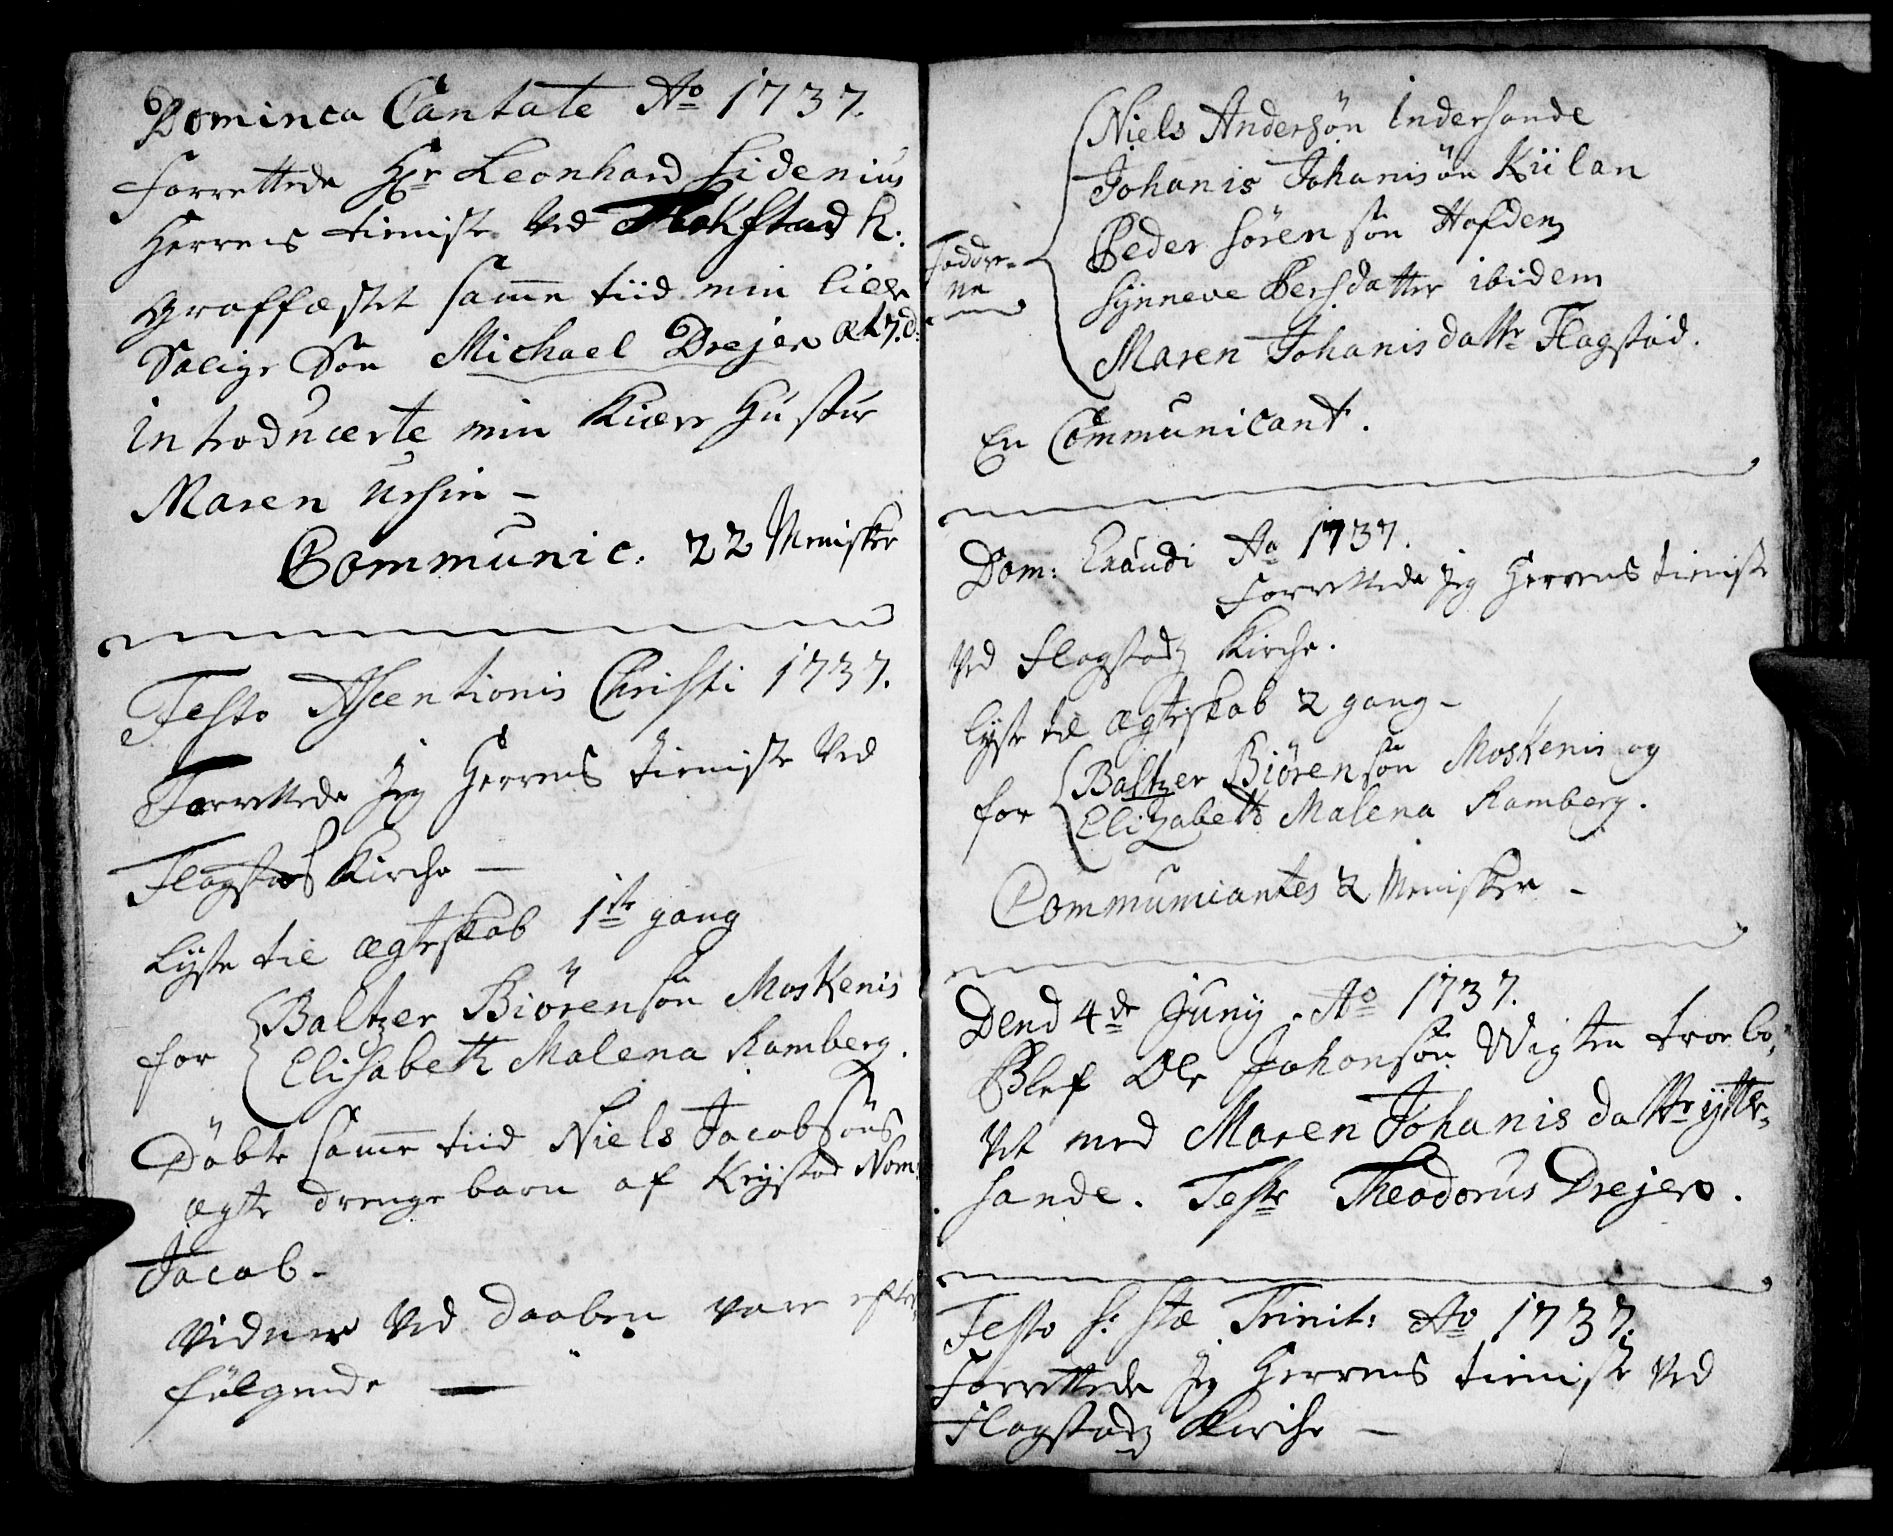 Dominca Cantate Ao 1737.
forrettede Hr Leonhard Sidenius
Herrens tieniste Ved Flakstad k:
Graffæstet samme tiid min lille
Salige Søn Michael Drejer æt 7. d:
introducerte min Kiære Hustur
Maren Ursin –
Communic. 22 Menisker
Festo Ascentionis Christi 1737.
Forrettede Jeg Herrens tieniste Ved
Flagstad Kirche –
Lyste til ægteskab 1ste gang
for Baltzer Biörensön Moskenis
Elisabeth Malena Ramberg.
Döbte samme tiid Niels Jacobsöns
ægte drengebarn af Krystad Nom:
Jacob –
Vidner Ved Daaben vare efter
følgende —
Niels Andersön Indersande
Johanis Johanisön Kiilan
Peder Sörensön Hofden
Faddre-
ne
Synneve Persdatter ibidem
Maren Johanisdattr Flagstad.
En Communicant.
Dom: Exaudi Ao 1737.
forrettede Jeg Herrens tieniste
Ved Flagstadz Kirche.
lyste til ægteskab 2 gang –
for Baltzer Biörensön Moskenis og
Elizabeth Malena Ramberg.
Communicantes 2 Menisker –
Dend 4de Juny. Ao 1737.
Blef Ole Johonsön Wigten troelo-
vet med Maren Johanisdattr ytter-
sande. Teste Theodorus Drejer.
Festo S: Stæ Trinit: Ao 1737.
Forrettede Jeg Herrens tieniste Ved
Flagstadz Kirche –